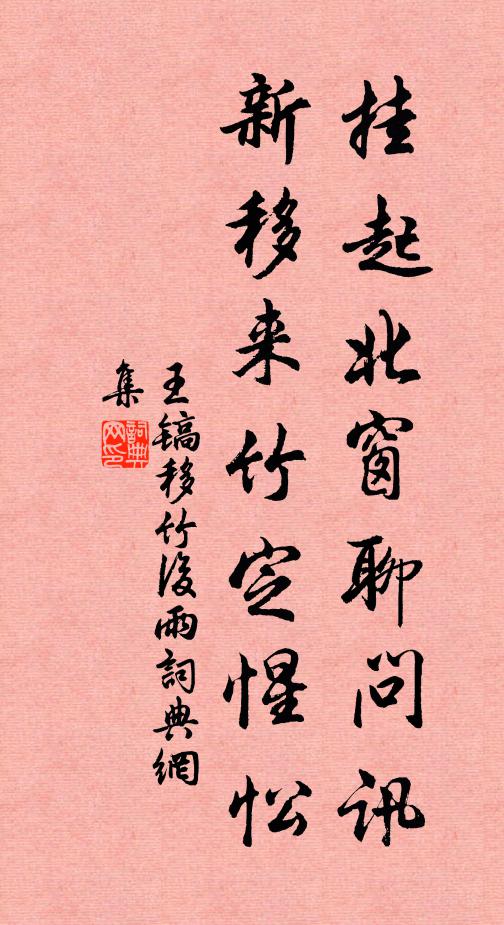 挂起北窗聊问讯
新移来竹定惺忪
王镐移竹後雨詞典網
集
詞典网印